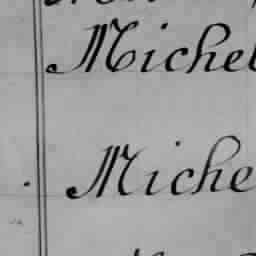 Michel
Miche